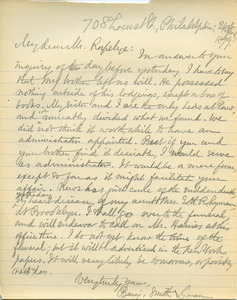 708 Locust St, Philadelphia,
My dear Mr. Rapelye:
In answer to your
inquiry of the day before yesterday I have to say
that my brother left no will. He possessed
nothing outside of his lodgings, except a box of
books. My sister and I are the only heirs at law
and amicably divided what we found. We
did not think it worth while to have an
administrator appointed. But if you and
your find it desirable, I would serve
as administrator. It would be a mere form
except so far as it might facilitate your
affair. News has just come of the sudden death
by heart disease, of my aunt Mrs.
at Brooklyn. I shall go over to the funeral
and will endeavor to call on Mr. at his
office. I do not yet know the time of the
funeral; but it will be advertised in the New York
papers. It will very likely be tomorrow, or possibly
next day.
Very truly yours,
Benj. Smith Lyman